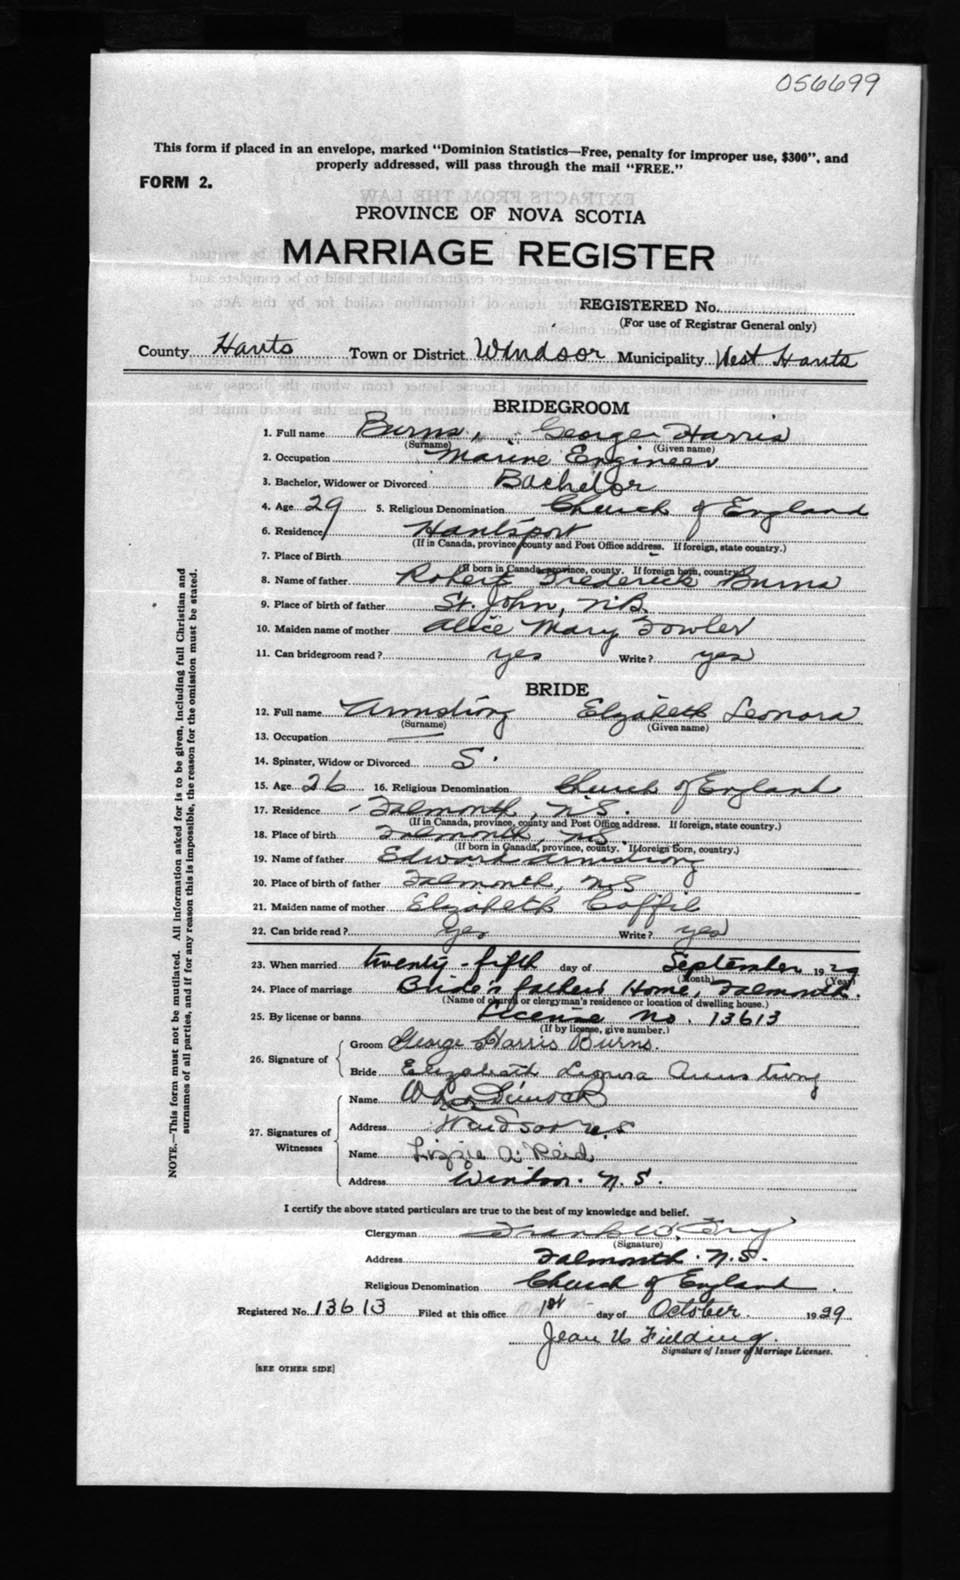 056699
This form if placed in an envelope, marked "Dominion Statistics—Free, penalty for improper use, $300", and
properly addressed, will pass through the mail "FREE."
FORM 2.
PROVINCE OF NOVA SCOTIA
MARRIAGE REGISTER
REGISTERED No.
(For use of Registrar General only)
County Hants Town or District Windsor Municipality West Hants
BRIDEGROOM
1. Full name Burns, George Harris
(Surname) (Given name)
2. Occupation Marine Engineer
3. Bachelor, Widower or Divorced Bachelor
4. Age 29 5. Religious Denomination Church of England
6. Residence Hantsport
(If in Canada, province, county and Post Office address. If foreign, state country.)
7. Place of Birth
(If born in Canada, province, county. If foreign born, country.)
8. Name of father Robert Frederick Burns
9. Place of birth of father St. John, N.B.
10. Maiden name of mother Alice Mary Fowler
11. Can bridegroom read? yes Write? yes
BRIDE
12. Full name Armstrong Elizabeth Leonora
(Surname) (Given name)
13. Occupation —
14. Spinster, Widow or Divorced S.
15. Age 26 16. Religious Denomination Church of England
17. Residence Falmouth, N.S.
(If in Canada, province, county and Post Office address. If foreign, state country.)
18. Place of birth Falmouth, N.S.
(If born in Canada, province, county. If foreign born, country.)
19. Name of father Edward Armstrong
20. Place of birth of father Falmouth, N.S
21. Maiden name of mother Elizabeth Coffil
22. Can bride read? yes Write? yes
23. When married twenty-fifth day of September 1929
(Month) (Year)
24. Place of marriage Bride's father's Home, Falmouth.
(Name of church or clergyman's residence or location of dwelling house.)
25. By license or banns License No. 13613
(If by license, give number.)
26. Signature of
Groom George Harris Burns.
Bride Elizabeth Leonora Armstrong
27. Signatures of Witnesses
Name Dimock
Address Windsor N.S
Name Lizzie A. Reid
Address Windsor. N.S.
I certify the above stated particulars are true to the best of my knowledge and belief.
Clergyman Frank
(Signature)
Address Falmouth. N.S.
Religious Denomination Church of England.
Registered No. 13613 Filed at this office 1st day of October 1929
Jean U Fielding.
Signature of Issuer of Marriage Licenses.
[SEE OTHER SIDE]
NOTE.—This form must not be mutilated. All information asked for is to be given, including full Christian and
surnames of all parties, and if for any reason this is impossible, the reason for the omission must be stated.
EXTRACTS FROM THE LAW